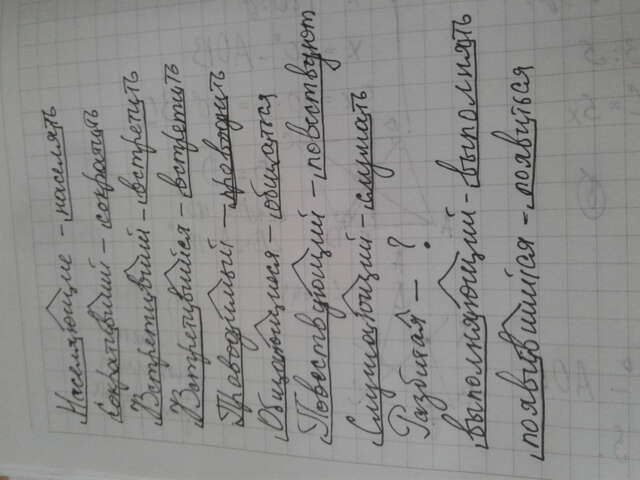 Населяющие - населять
Сокративший - сократить
Встретивший - встретить
Встретившийся - встретить
Проводимый - проводить
Общающиеся - общаться
Повествующий - повествуют
Слушающий - слушать
Разбитая - ?
выполняющий - выполнять
появившийся - появиться